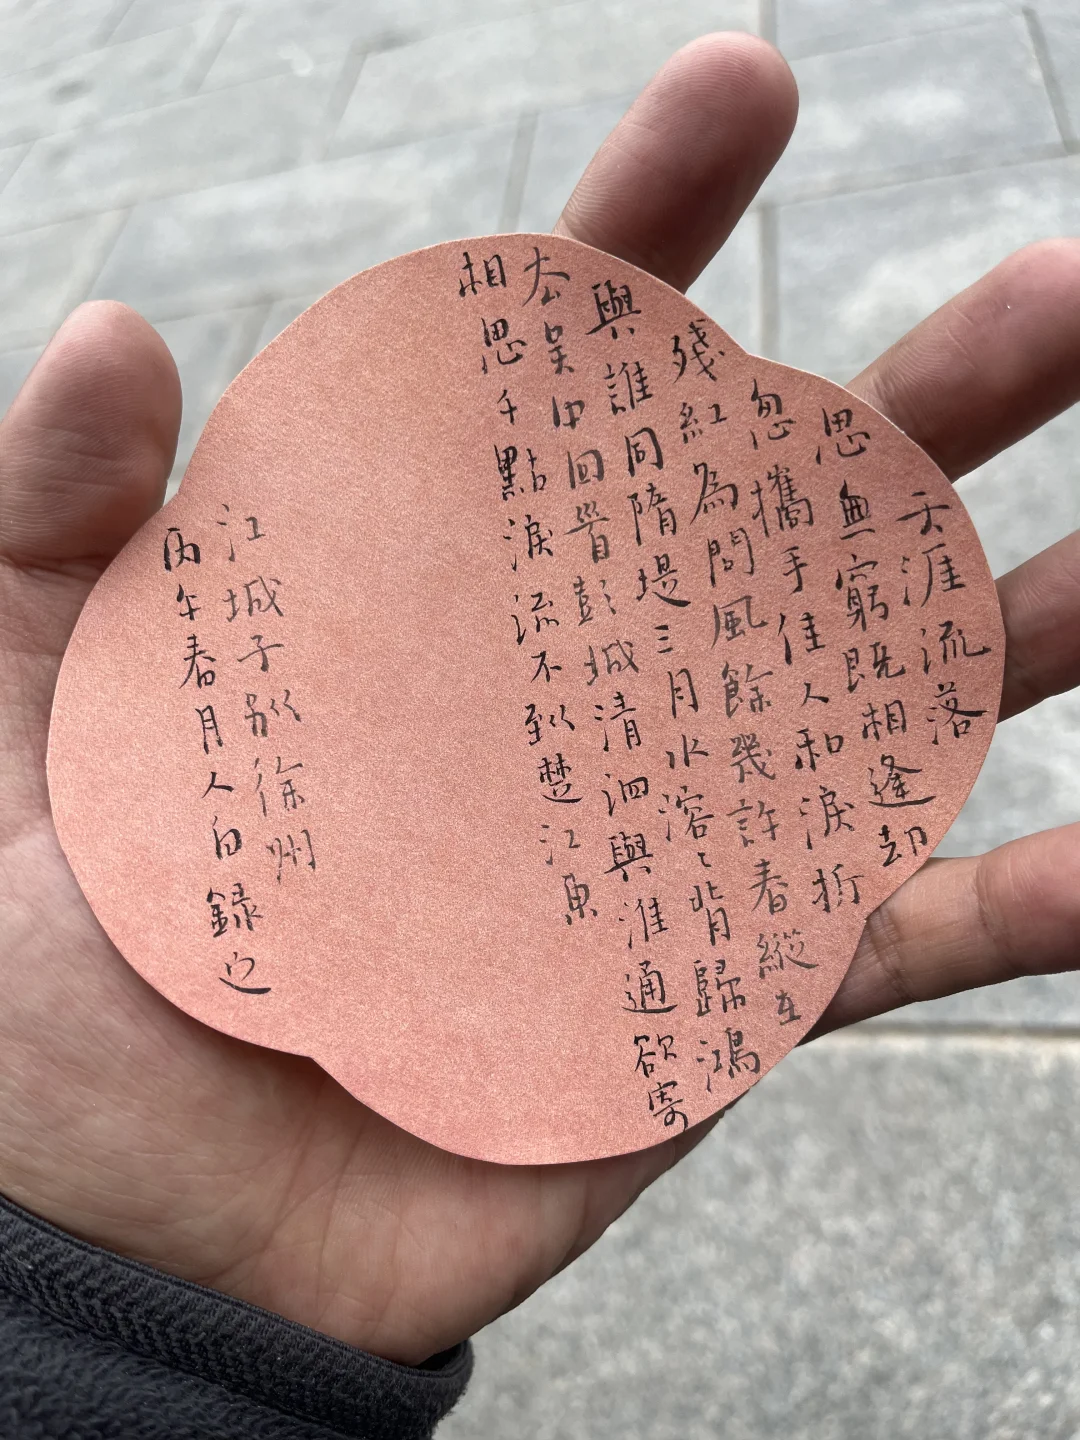 天涯流落
思無窮既相逢却
怱攜手佳人和淚折
殘紅為問風餘幾許春縱在
與誰同隋堤三月水溶〻背歸鴻
去吳中回首彭城清泗與淮通欲寄
相思千點淚流不到楚江東
江城子別徐州
丙午春月人白録之